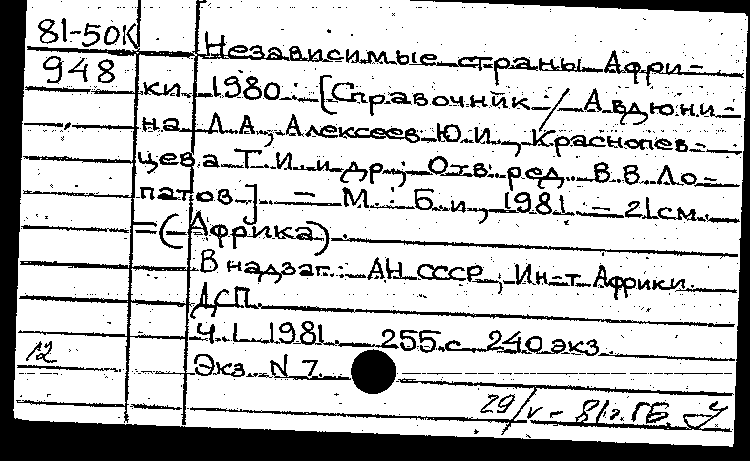 81-50К
948
Независимые страны Афри-
ки 1980: [Справочник / Авдюни-
на Л.А., Алексеев Ю.И., Краснопев-
цева Т.И. и др.; Отв. ред. В.В. Ло-
патов] — М.: Б.и., 1981. — 21см.
=(Африка).
В надзаг.: АН СССР, Ин-т Африки.
ДСП.
Ч.1. 1981. 255 с. 240 экз.
12
Экз. N 7.
29/v - 81г. ГБ.